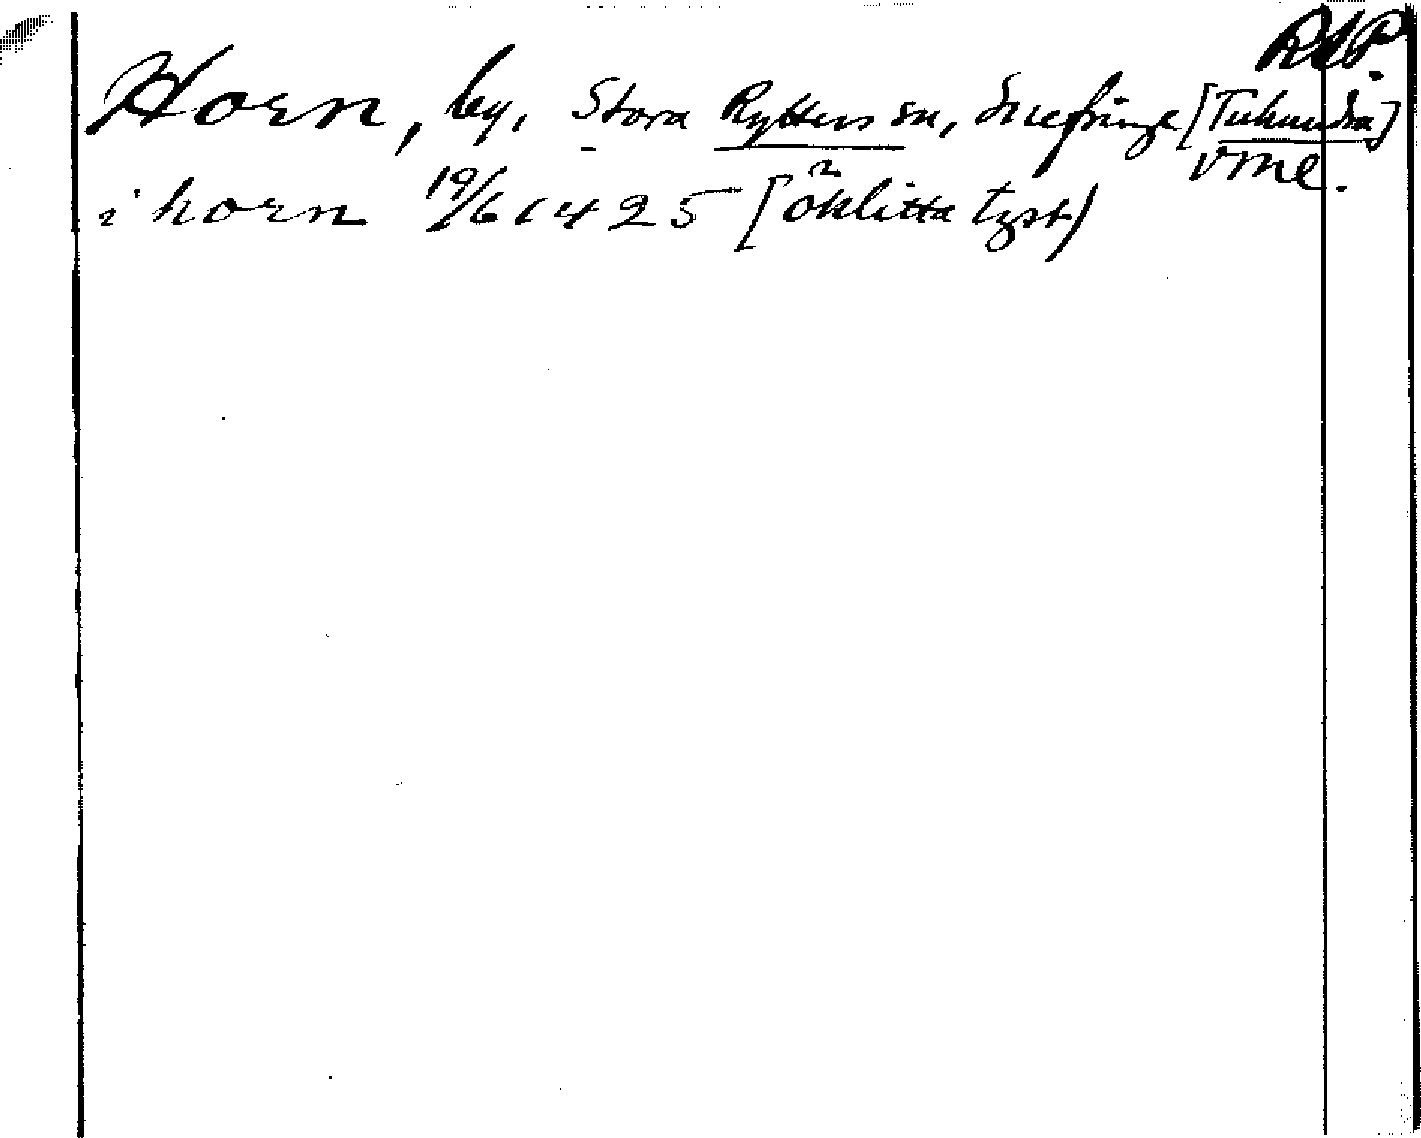 RAP.
Horn, by, Stora Rytterns sn, Snefringe [Tuhundra]
Vml.
i horn 19/6 1425 [öklitta tyst)